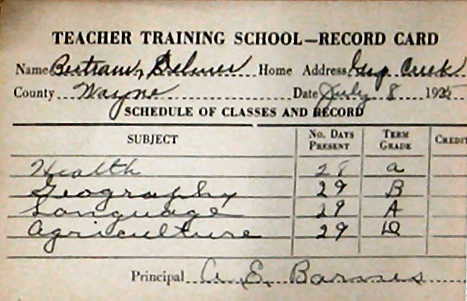 TEACHER TRAINING SCHOOL—RECORD CARD
Name Bertram, Delmer Home Address Creek
County Wayne Date July 8 1925
SCHEDULE OF CLASSES AND RECORD
SUBJECT No. Days Present Term Grade Credit
Health 28 a
Geography 29 B
Language 29 A
Agriculture 29 D
Principal A. E. Barnes